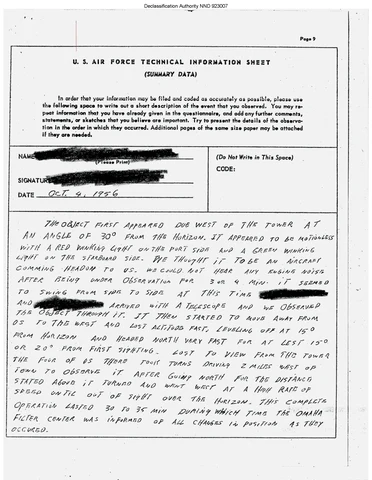 Declassification Authority NND 923007
Page 9
U. S. AIR FORCE TECHNICAL INFORMATION SHEET
(SUMMARY DATA)
In order that your information may be filed and coded as accurately as possible, please use
the following space to write out a short description of the event that you observed. You may re-
peat information that you have already given in the questionnaire, and add any further comments,
statements, or sketches that you believe are important. Try to present the details of the observa-
tion in the order in which they occurred. Additional pages of the same size paper may be attached
if they are needed.
NAME
(Please Print)
SIGNATURE
DATE OCT. 4, 1956
(Do Not Write in This Space)
CODE:
THE OBJECT FIRST APPEARED DUE WEST OF THE TOWER AT
AN ANGLE OF 30° FROM THE HORIZON. IT APPEARED TO BE MOTIONLESS
WITH A RED WINKING LIGHT ON THE PORT SIDE AND A GREEN WINKING
LIGHT ON THE STARBOARD SIDE. WE THOUGHT IT TO BE AN AIRCRAFT
COMMING HEADON TO US. WE COULD NOT HEAR ANY ENGINE NOISE
AFTER BEING UNDER OBSERVATION FOR 3 OR 4 MIN. IT SEEMED
TO SWING FROM SIDE TO SIDE AT THIS TIME
AND ARRIVED WITH A TELESCOPE AND WE OBSERVED
THE OBJECT THROUGH IT. IT THEN STARTED TO MOVE AWAY FROM
US TO THE WEST AND LOST ALTITUDE FAST, LEVELING OFF AT 15°
FROM HORIZON AND HEADED NORTH VERY FAST FOR AT LEST 15°
OR 20° FROM FIRST SIGHTING. LOST TO VIEW FROM THE TOWER
THE FOUR OF US THERE TOOK TURNS DRIVING 2 MILES WEST OF
TOWN TO OBSERVE IT AFTER GOING NORTH FOR THE DISTANCE
STATED ABOVE IT TURNED AND WENT WEST AT A HIGH RATE OF
SPEED UNTIL OUT OF SIGHT OVER THE HORIZON. THIS COMPLETE
OPERATION LASTED 30 TO 35 MIN DURING WHICH TIME THE OMAHA
FILTER CENTER WAS INFORMED OF ALL CHANGES IN POSITION AS THEY
OCCURED.